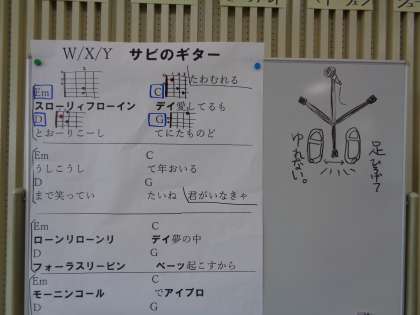 W/X/Y サビのギター
たわむれる
Em C
スローリィフローイン デイ愛してるも
D G
とおーりこーし てにたものど
Em C
うしこうし て年おいる
D G
まで笑ってい たいね 君がいなきゃ
Em C
ローンリローンリ デイ夢の中
D G
フォーラスリーピン ベーツ起こすから
Em C
モーニンコール でアイプロ
D G
足ひらけ?
ゆれない。